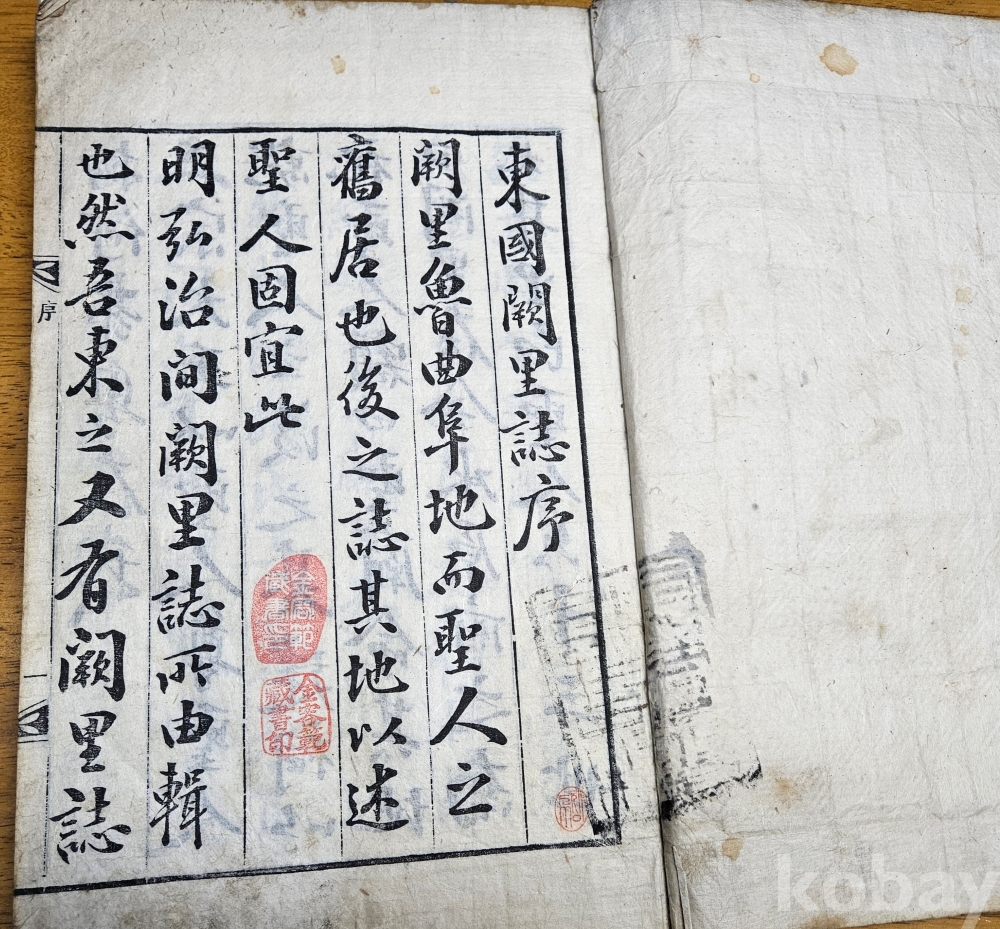 東國闕里誌序
闕里魯曲阜地而聖人之
舊居也後之誌其地以述
聖人固宜此
明弘治间闕里誌所由輯
也然吾東之又有闕里誌
序
一
藏書印
藏書印
kobay